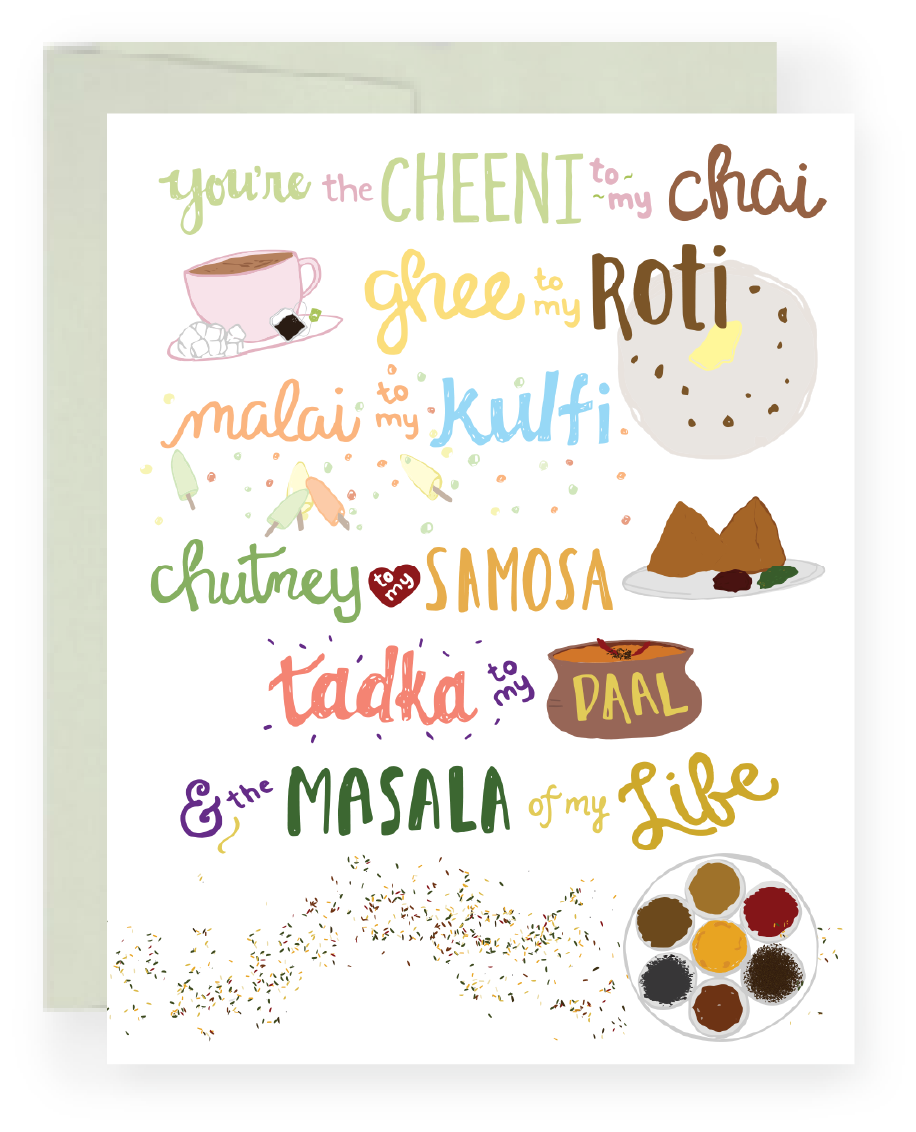 you're the CHEENI to my chai
ghee to my ROTi
malai to my kulfi
chutney to my SAMOSA
tadka to my DAAL
& the MASALA of my Life